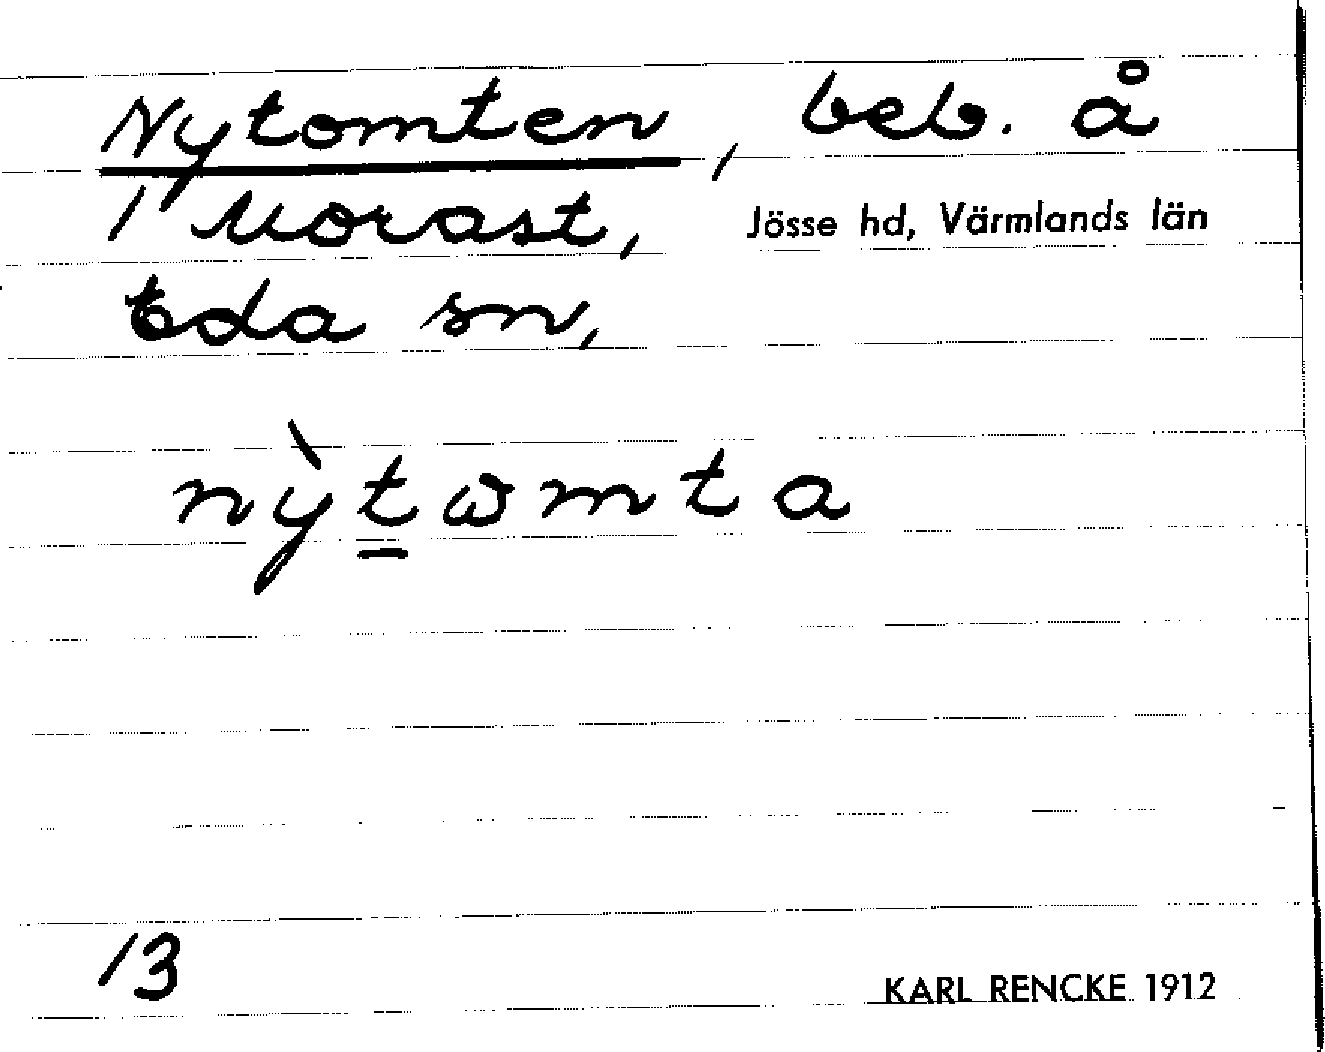 Nytomten, beb. å
1 Morast, Jösse hd, Värmlands län
Eda sn,
nỳt̲ωmta
13
KARL RENCKE 1912